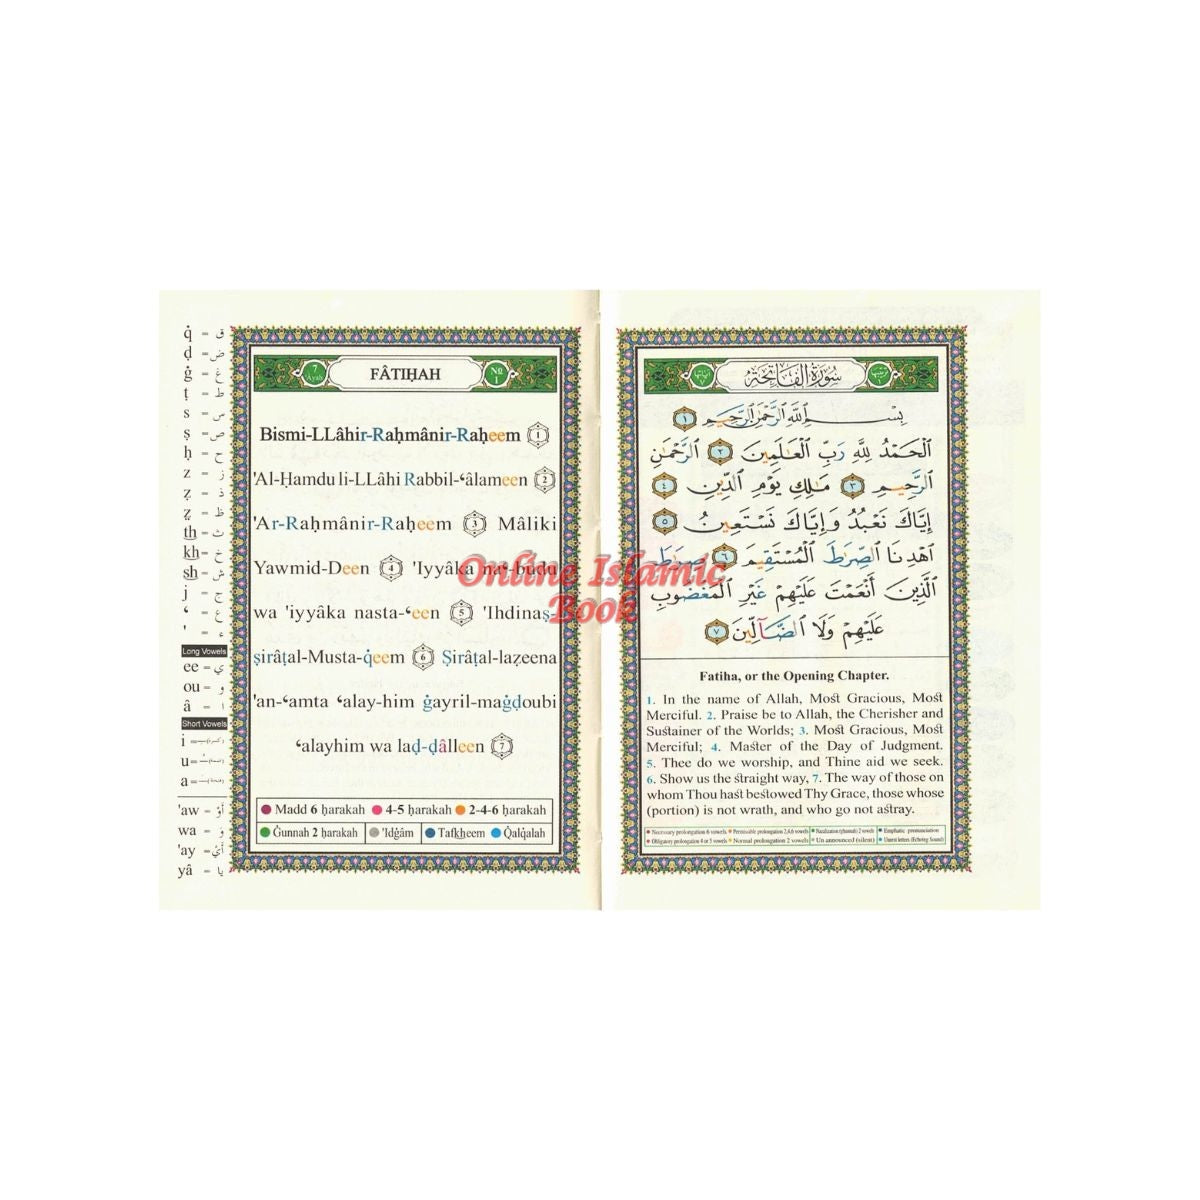 q̇ = ق
ḍ = ض
ġ = غ
ṭ = ط
s = س
ṣ = ص
ḥ = ح
z = ز
ẓ = ذ
ẓ = ظ
th = ث
kh = خ
sh = ش
j = ج
‘ = ع
' = ء
Long Vowels
ee = ي
ou = و
â = ا
Short Vowels
i =
u =
a =
'aw = أَوْ
wa = وَ
'ay = أَيْ
yâ = يا
7 Ayah FÂTIḤAH № 1
Bismi-LLâhir-Raḥmânir-Raḥeem 1
'Al-Ḥamdu li-LLâhi Rabbil-‘âlameen 2
'Ar-Raḥmânir-Raḥeem 3 Mâliki
Yawmid-Deen 4 'Iyyâka na‘-budu
wa 'iyyâka nasta-‘een 5 'Ihdinaṣ-
ṣirâṭal-Musta-q̇eem 6 Ṣirâṭal-laẓeena
'an-‘amta ‘alay-him ġayril-maġḍoubi
‘alayhim wa laḍ-ḍâlleen 7
Madd 6 ḥarakah 4-5 ḥarakah 2-4-6 ḥarakah
Ġunnah 2 ḥarakah 'Idġâm Tafkheem Q̇alq̇alah
سُورَةُ الفَاتِحَةِ
بِسْمِ ٱللَّهِ ٱلرَّحْمَٰنِ ٱلرَّحِيمِ ١
ٱلْحَمْدُ لِلَّهِ رَبِّ ٱلْعَٰلَمِينَ ٢ ٱلرَّحْمَٰنِ
ٱلرَّحِيمِ ٣ مَٰلِكِ يَوْمِ ٱلدِّينِ ٤
إِيَّاكَ نَعْبُدُ وَإِيَّاكَ نَسْتَعِينُ ٥
ٱهْدِنَا ٱلصِّرَٰطَ ٱلْمُسْتَقِيمَ ٦ صِرَٰطَ
ٱلَّذِينَ أَنْعَمْتَ عَلَيْهِمْ غَيْرِ ٱلْمَغْضُوبِ
عَلَيْهِمْ وَلَا ٱلضَّآلِّينَ ٧
Fatiha, or the Opening Chapter.
1. In the name of Allah, Most Gracious, Most
Merciful. 2. Praise be to Allah, the Cherisher and
Sustainer of the Worlds; 3. Most Gracious, Most
Merciful; 4. Master of the Day of Judgment.
5. Thee do we worship, and Thine aid we seek.
6. Show us the straight way, 7. The way of those on
whom Thou hast bestowed Thy Grace, those whose
(portion) is not wrath, and who go not astray.
Necessary prolongation 6 vowels Permissible prolongation 2,4,6 vowels Nazalization (ghunnah) 2 vowels Emphatic pronunciation
Obligatory prolongation 4 or 5 vowels Normal prolongation 2 vowels Un announced (silent) Unrest letters (Echoing Sound)
Online Islamic
Book